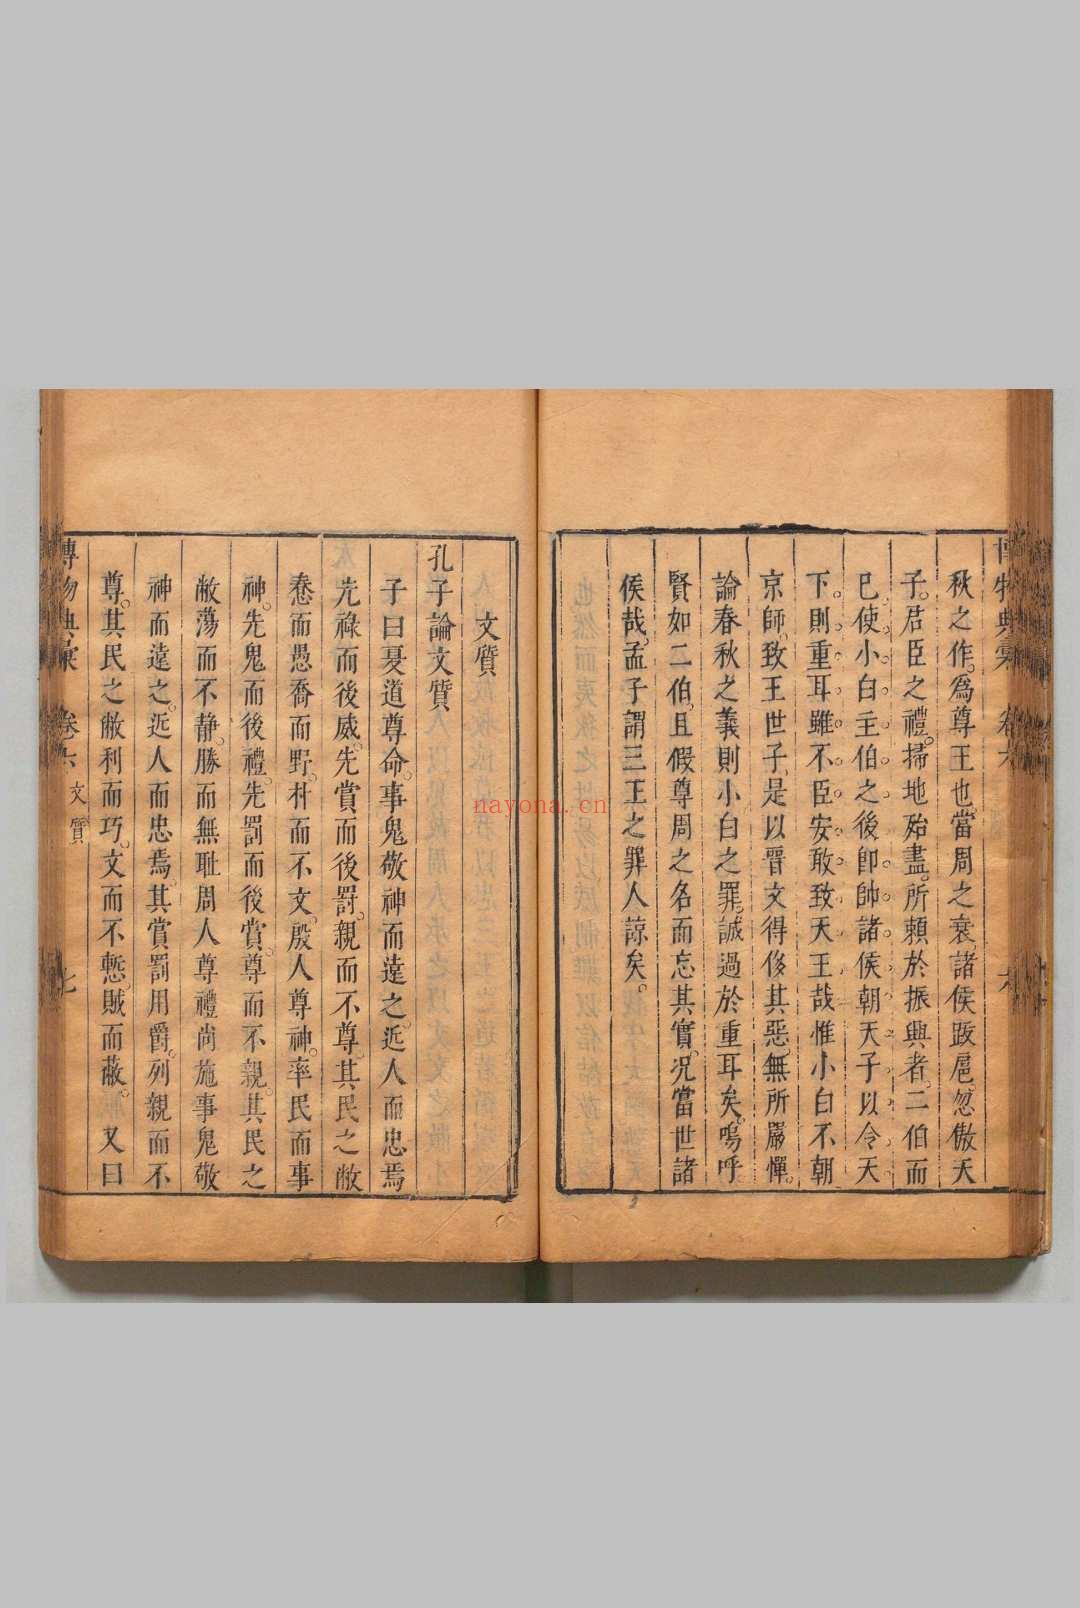 博物典彙 卷六 六
秋之作。為尊王也。當周之衰。諸侯跋扈。忽傲天
子。君臣之禮。掃地殆盡。所賴於振興者。二伯而
已使小白主伯之後卽帥諸侯朝天子以令天
下則重耳雖不臣安敢致天王哉惟小白不朝
京師。致王世子。是以晉文得侈其惡。無所嚴憚。
論春秋之義則小白之罪。誠過於重耳矣。嗚呼。
賢如二伯。且假尊周之名而忘其實。况當世諸
侯哉。孟子謂三王之罪人諒矣。
文質
孔子論文質
子曰夏道尊命。事鬼敬神而遠之。近人而忠焉
先祿而後威。先賞而後罰。親而不尊。其民之敝
惷而愚喬而野。朴而不文。殷人尊神。率民而事
神。先鬼而後禮。先罰而後賞。尊而不親。其民之
敝蕩而不静。勝而無耻周人尊禮尚施事鬼敬
神而遠之。近人而忠焉。其賞罰用爵。列親而不
尊。其民之敝利而巧。文而不慙。賊而蔽。 又曰
博物典彙 卷六 文質 七
nayona.cn